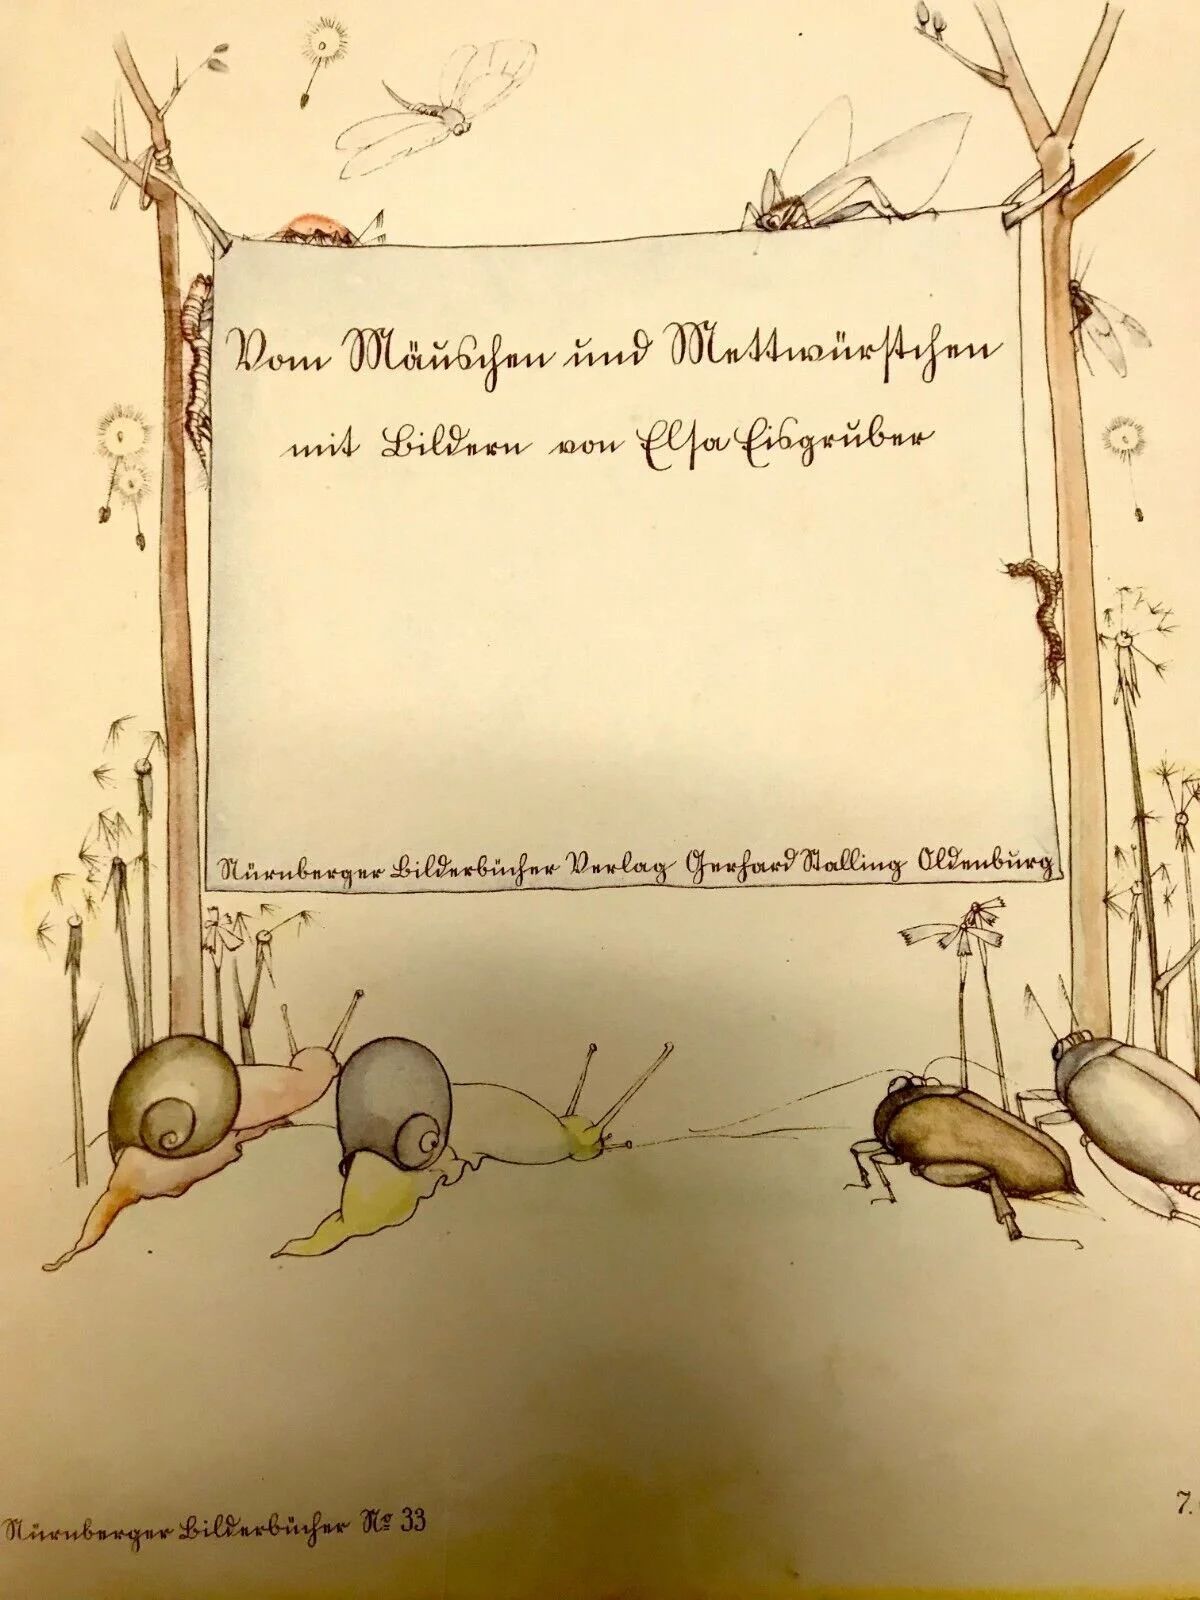 Vom Mäuschen und Mettwürstchen
mit Bildern von Elsa Eisgruber
Nürnberger Bilderbücher Verlag Gerhard Stalling Oldenburg
Nürnberger Bilderbücher No 33
7.